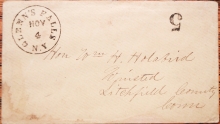 GLENN'S FALLS N.Y.
NOV
4
5
Hon Wm H. Holabird
Winsted
Litchfield County
Conn